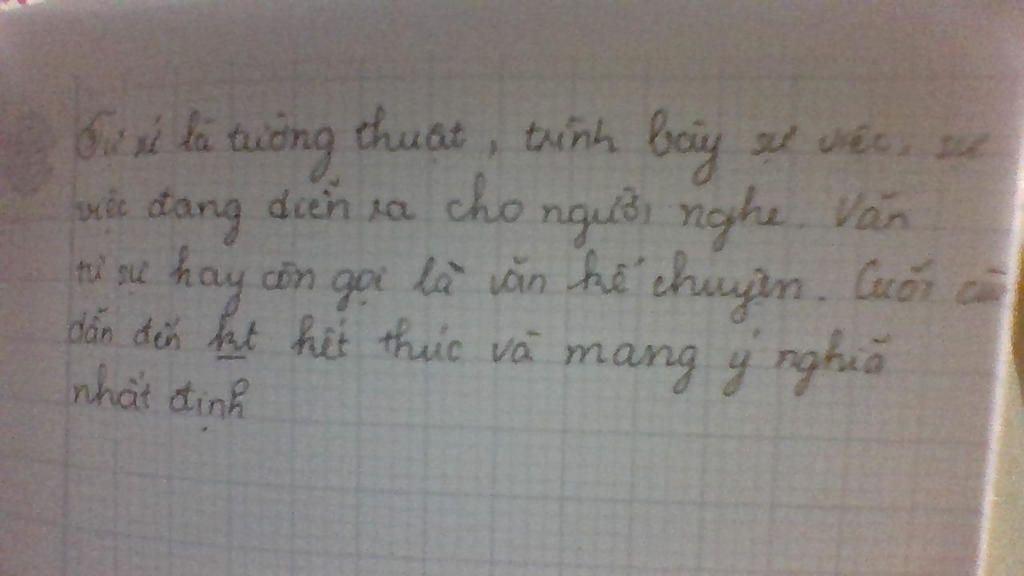 Tự sự là tường thuật, trình bày sự việc, sự
việc đang diễn ra cho người nghe. Văn
tự sự hay còn gọi là văn kể chuyện. Cuối
dẫn đến kết thúc và mang ý nghĩa
nhất định